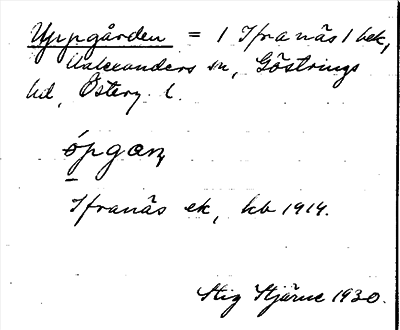 Uppgården = 1 Ifranäs 1 bek,
Malexanders sn, Göstrings
hd, Österg. l.
öpgaɳ
Ifranäs ek, kb 1914.
Stig Stjärne 1930.